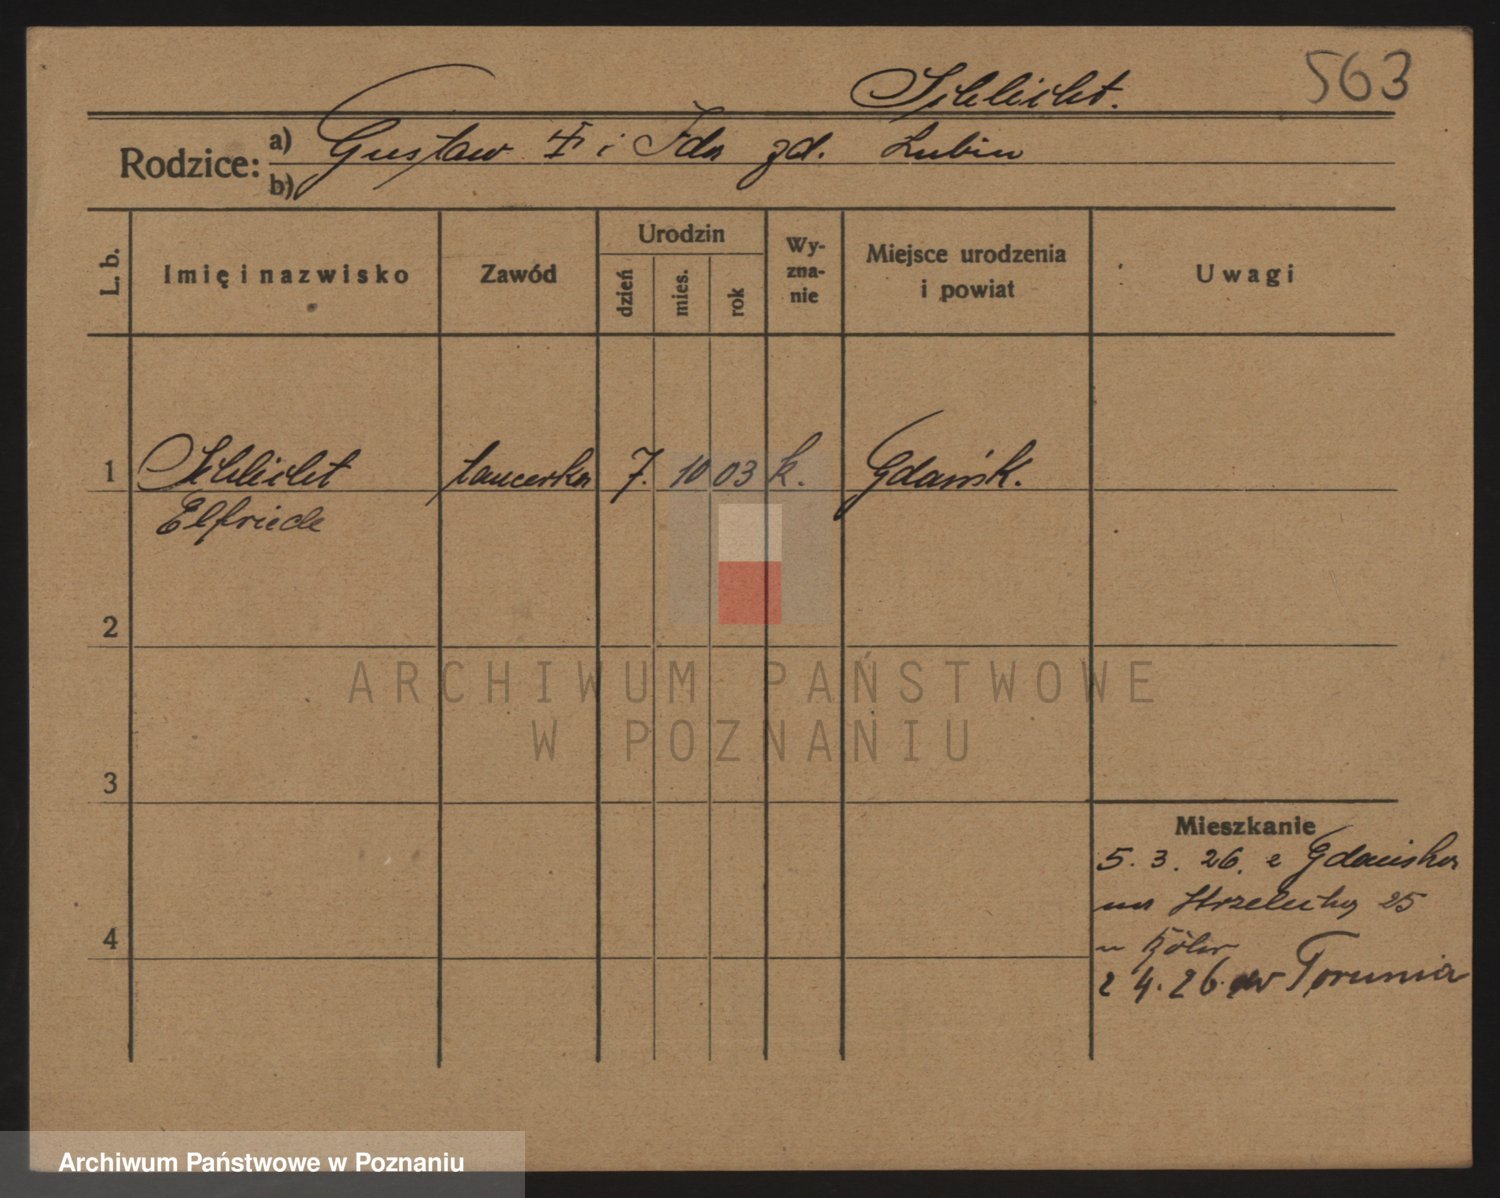 563
Schlicht.
Rodzice: a) Gustaw i Ida zd. Lubin
b)
L. b. Imię i nazwisko Zawód Urodzin dzień mies. rok Wy-zna-nie Miejsce urodzenia i powiat Uwagi
1 Schlicht tancerka 7. 10 03 k. Gdańsk.
Elfriede
2
ARCHIWUM PAŃSTWOWE
W POZNANIU
3
Mieszkanie
5. 3. 26. z Gdańska
na Strzelecką 25
4
u
2 4. 26. do Torunia
Archiwum Państwowe w Poznaniu